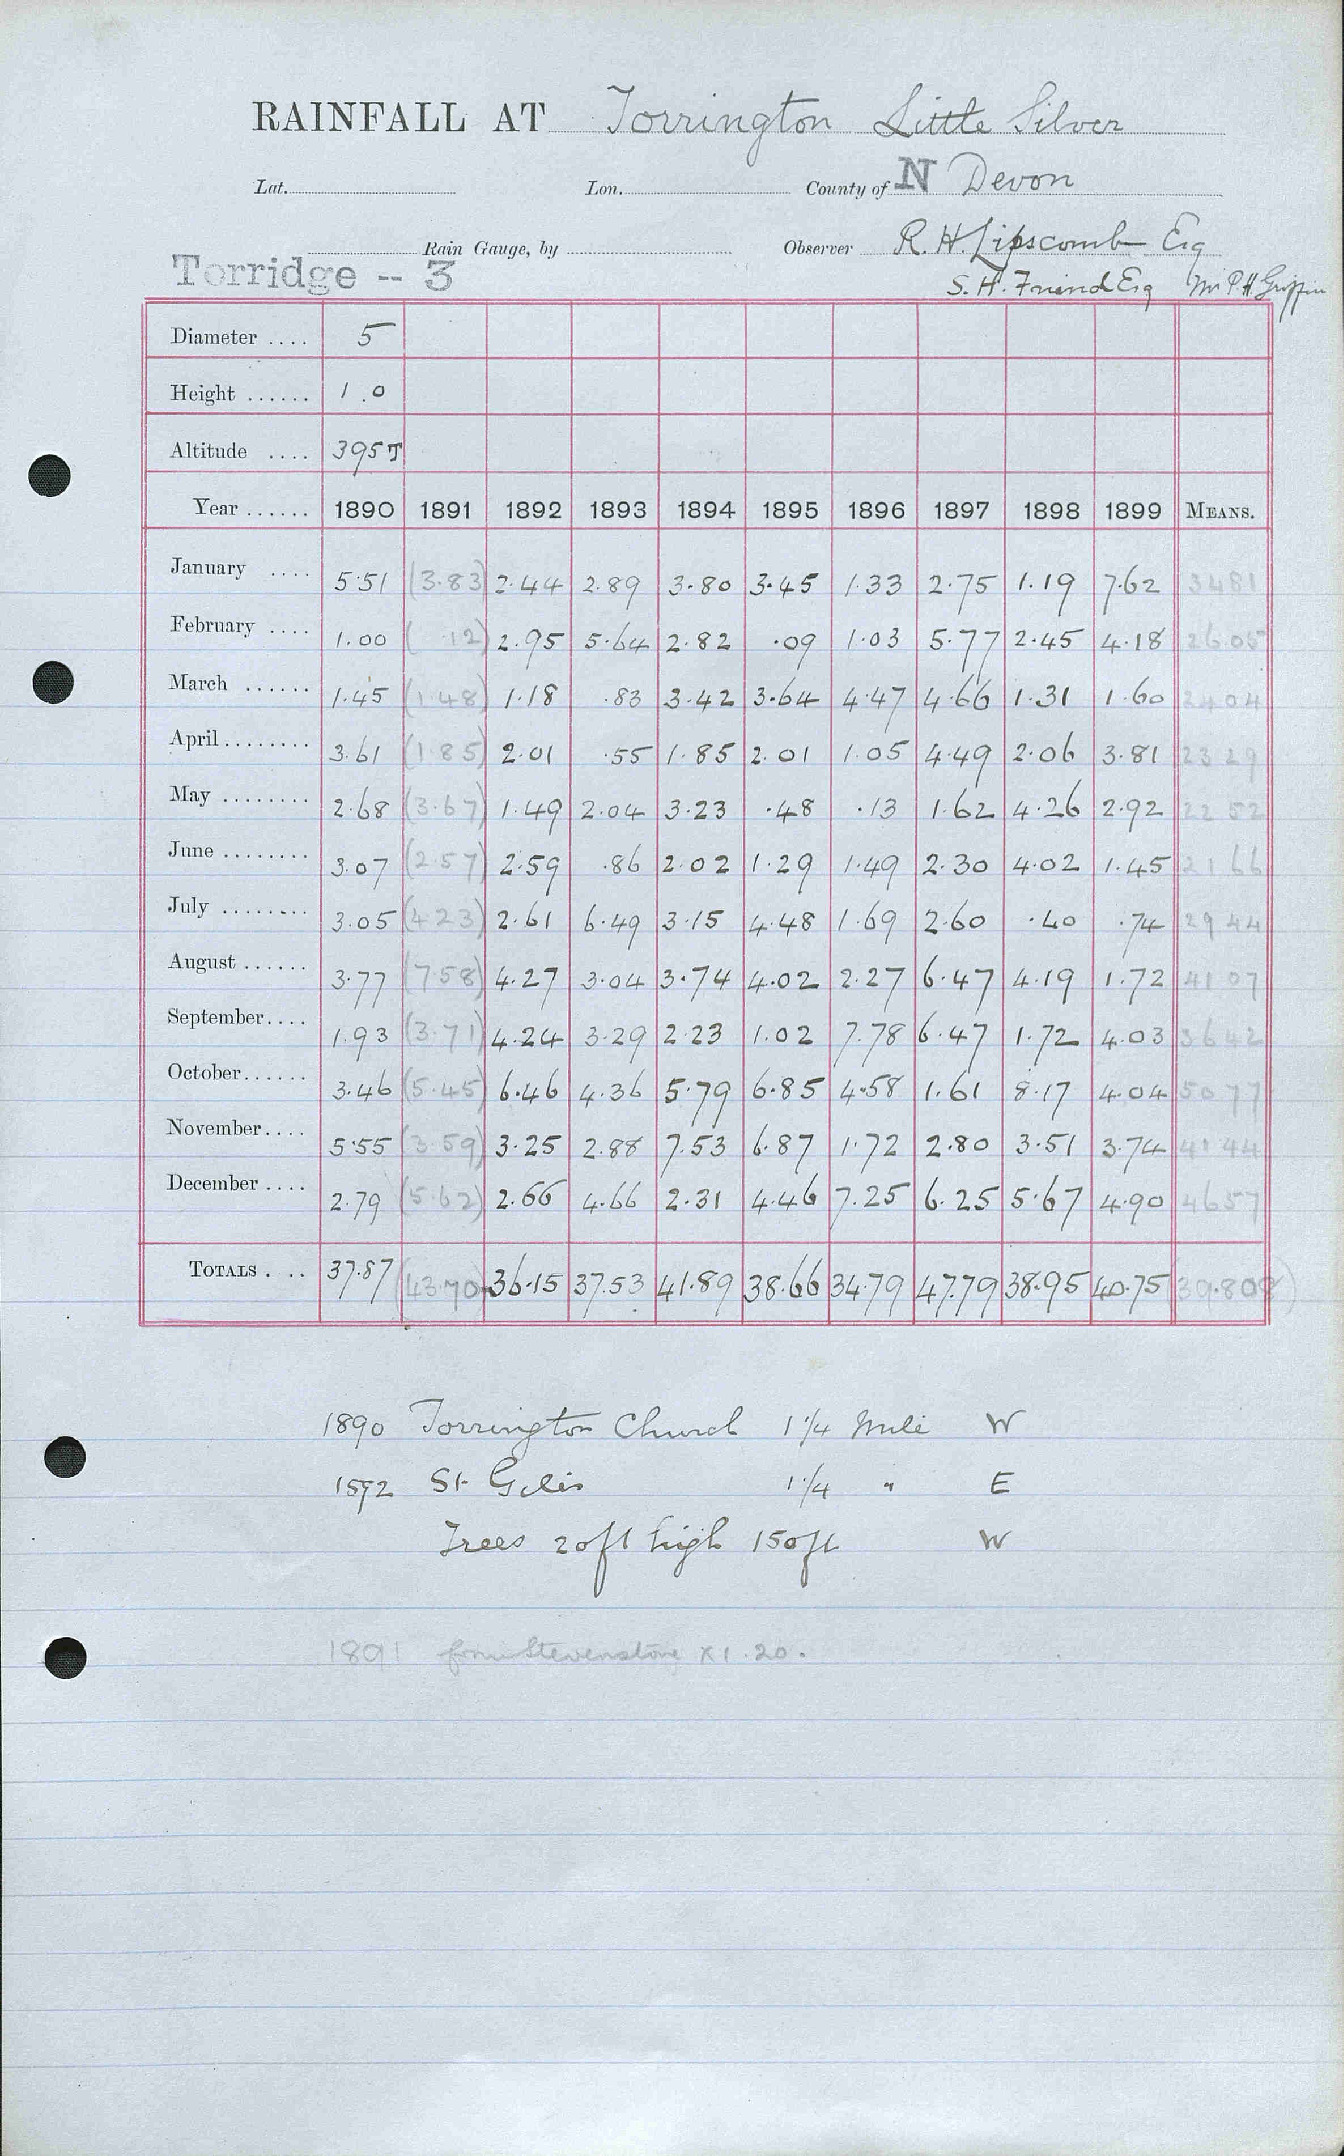 RAINFALL AT Torrington Little Silver
Lat. Lon. County of N Devon
Rain Gauge, by Observer R. H. Lipscomb Esq
Torridge -- 3 S. H. Friend Esq Mr P. H. Griffin
Diameter .... 5
Height ...... 1.0
Altitude .... 395 T
Year ...... 1890 1891 1892 1893 1894 1895 1896 1897 1898 1899 MEANS.
January .... 5.51 (3.83) 2.44 2.89 3.80 3.45 1.33 2.75 1.19 7.62 3481
February .... 1.00 ( .12) 2.95 5.64 2.82 .09 1.03 5.77 2.45 4.18 26.05
March ...... 1.45 (1.48) 1.18 .83 3.42 3.64 4.47 4.66 1.31 1.60 2404
April ........ 3.61 (1.85) 2.01 .55 1.85 2.01 1.05 4.49 2.06 3.81 2329
May ........ 2.68 (3.67) 1.49 2.04 3.23 .48 .13 1.62 4.26 2.92 2252
June ........ 3.07 (2.57) 2.59 .86 2.02 1.29 1.49 2.30 4.02 1.45 2166
July ........ 3.05 (4.23) 2.61 6.49 3.15 4.48 1.69 2.60 .40 .74 2944
August ...... 3.77 (7.58) 4.27 3.04 3.74 4.02 2.27 6.47 4.19 1.72 4107
September .... 1.93 (3.71) 4.24 3.29 2.23 1.02 7.78 6.47 1.72 4.03 3642
October ...... 3.46 (5.45) 6.46 4.36 5.79 6.85 4.58 1.61 8.17 4.04 5077
November .... 5.55 (3.59) 3.25 2.88 7.53 6.87 1.72 2.80 3.51 3.74 4144
December .... 2.79 (5.62) 2.66 4.66 2.31 4.46 7.25 6.25 5.67 4.90 4657
TOTALS . .. 37.87 (43.70) 36.15 37.53 41.89 38.66 34.79 47.79 38.95 40.75 39.808)
1890 Torrington Church 1 1/4 Mile W
1892 St Giles 1 1/4 " E
Trees 20ft high 150ft W
1891 from Stevenstone x 1.20.